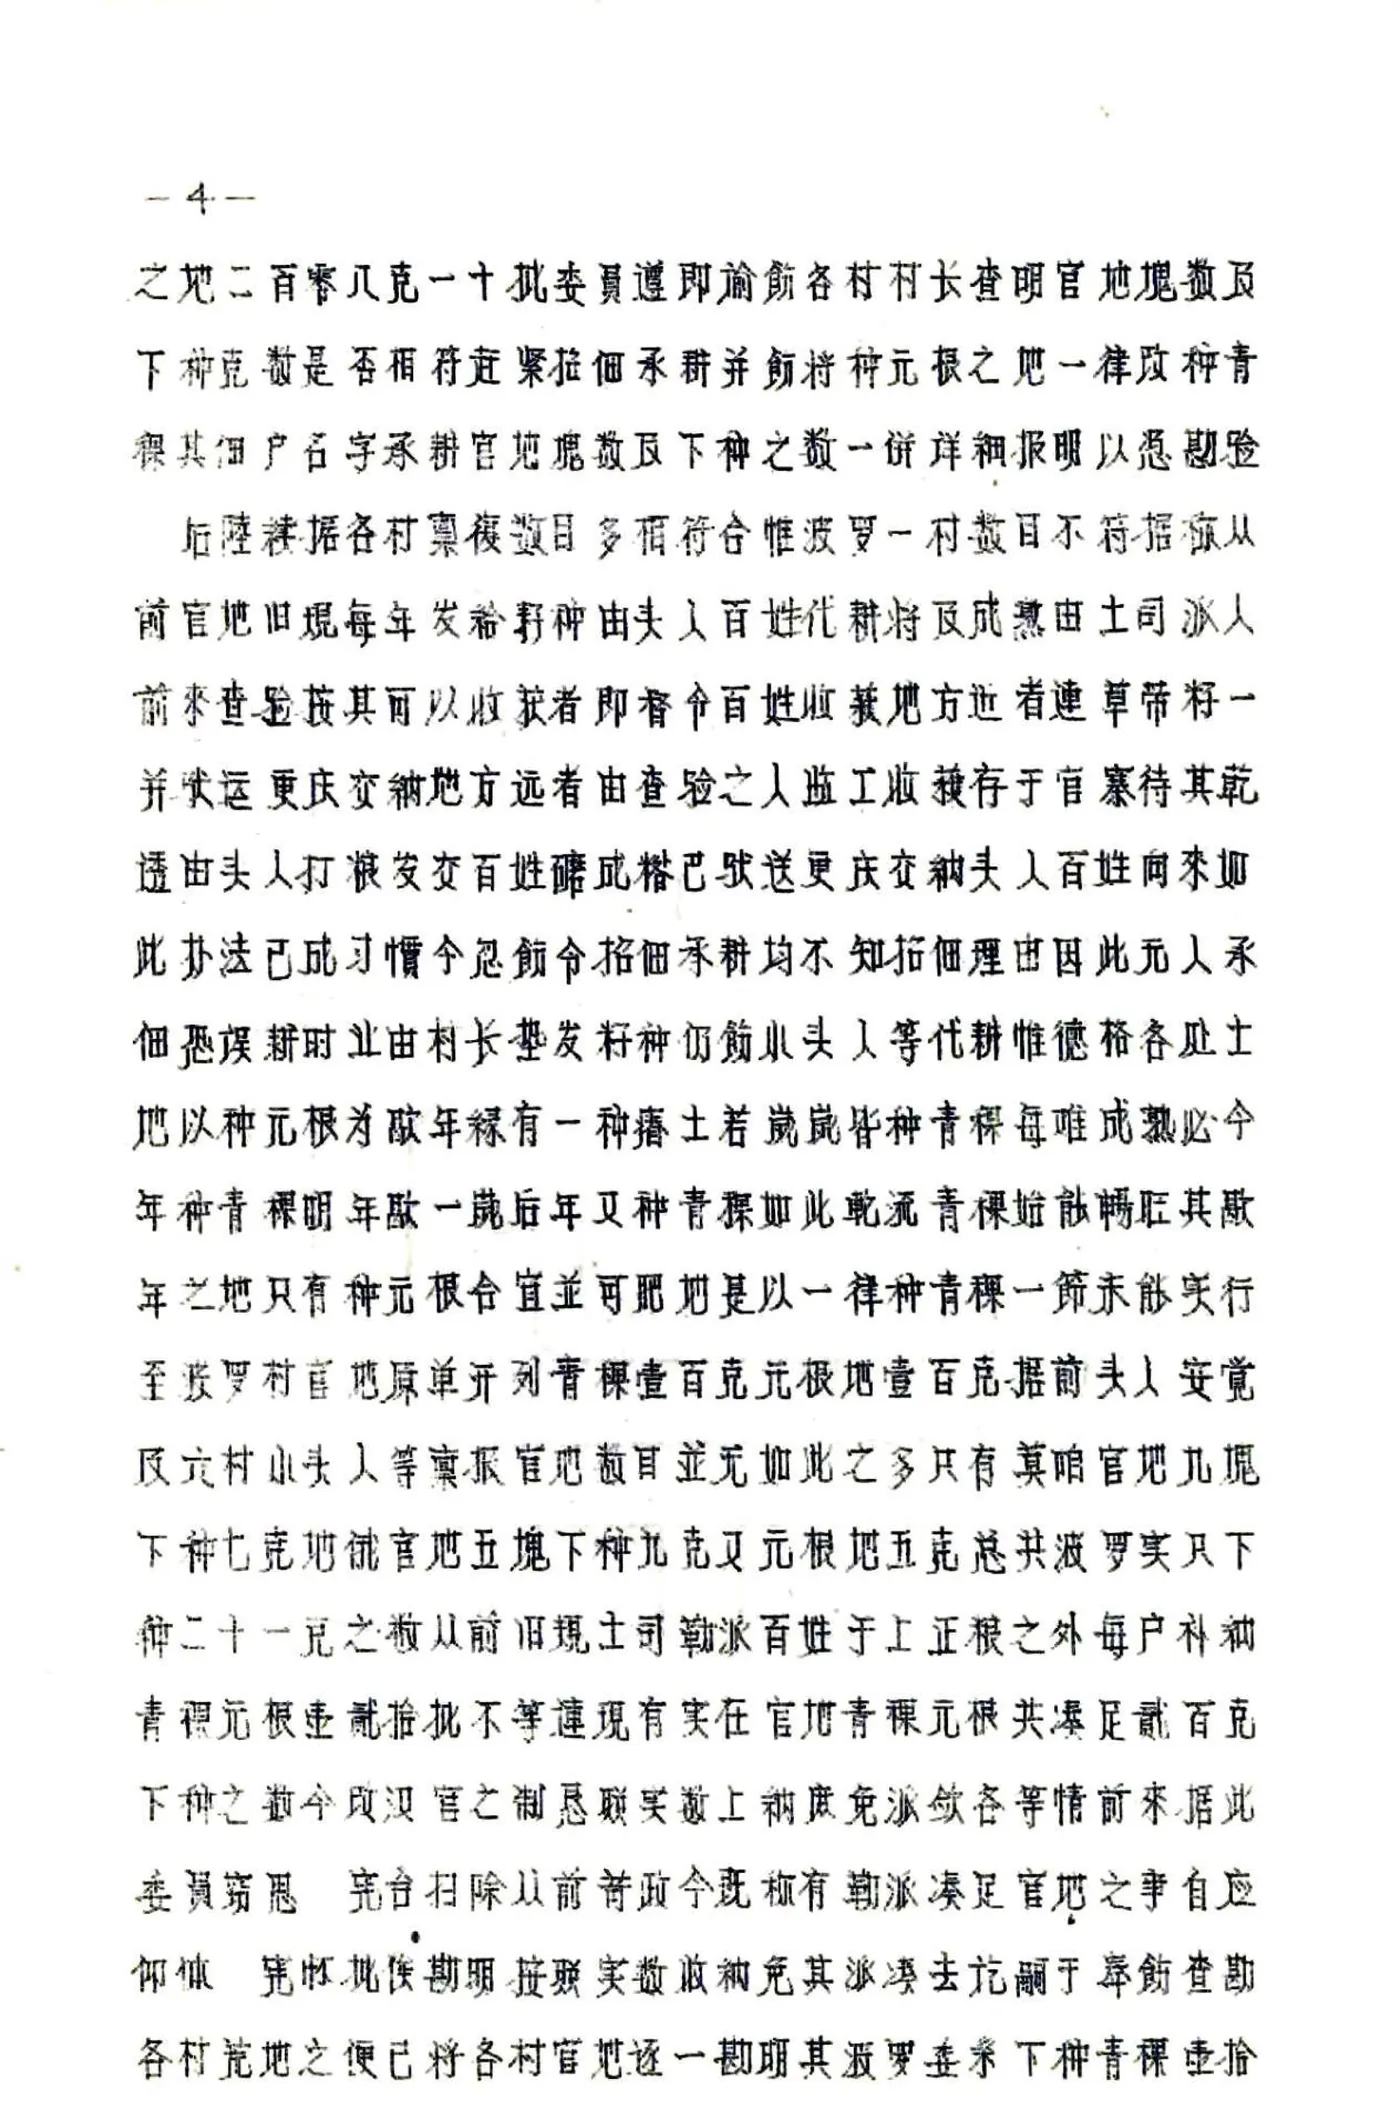 —4—
之地二百零八克一十批委員遵即諭飭各村村长查明官地塊数及
下种克数是否相符赶紧招佃承耕并飭将种元根之地一律改种青
稞其佃户名字承耕官地塊数及下种之数一併详细报明以凭勘验
后陸续据各村禀復数目多相符合惟波罗一村数目不符据称从
前官地旧規每年发给籽种由头人百姓代耕将及成熟由土司派人
前來查验按其可以收获者即督令百姓收获地方近者連草带籽一
并驮运更庆交納地方远者由查验之人监工收获存于官寨待其乾
透由头人打粮发交百姓磨成糌巴驮送更庆交納头人百姓向來如
此办法已成习慣今忽飭令招佃承耕均不知招佃理由因此无人承
佃恐误耕时业由村长垫发籽种仍飭小头人等代耕惟德格各处土
地以种元根为歇年緣有一种瘠土若歲歲皆种青稞每唯成熟必今
年种青稞明年歇一歲后年又种青稞如此乾流青稞始能暢旺其歇
年之地只有种元根合宜並可肥地是以一律种青稞一節未能实行
至波罗村官地原单开列青稞壹百克元根地壹百克据前头人安觉
及六村小头人等禀报官地数目並无如此之多只有莫咱官地九塊
下种七克地 官地五塊下种九克又元根地五克总共波罗实只下
种二十一克之数从前旧規土司勒派百姓于上正粮之外每户补納
青稞元根壹貳拾批不等連現有实在官地青稞元根共凑足貳百克
下种之数今改汉官之制恳照实数上納庶免派敛各等情前來据此
委員窃思　宪台扫除从前苛政今既称有勒派凑足官地之事自应
仰体　宪怀批俟勘明按照实数收納免其派凑去讫嗣于奉飭查勘
各村荒地之便已将各村官地逐一勘明其波罗 下种青稞壹拾